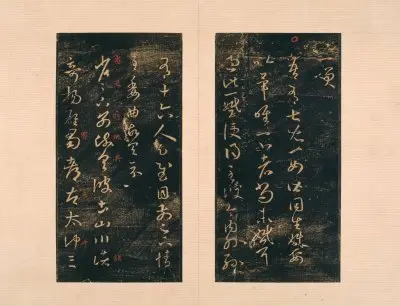 一嘆
吾有七兒一女皆同生婚娶
以畢唯一小者尚未婚耳
過此一婚便得至彼今內外孫
有十六人足慰目前足下情
至委曲故具示
省足下別疏具彼土山川諸
奇揚雄蜀都左太沖三